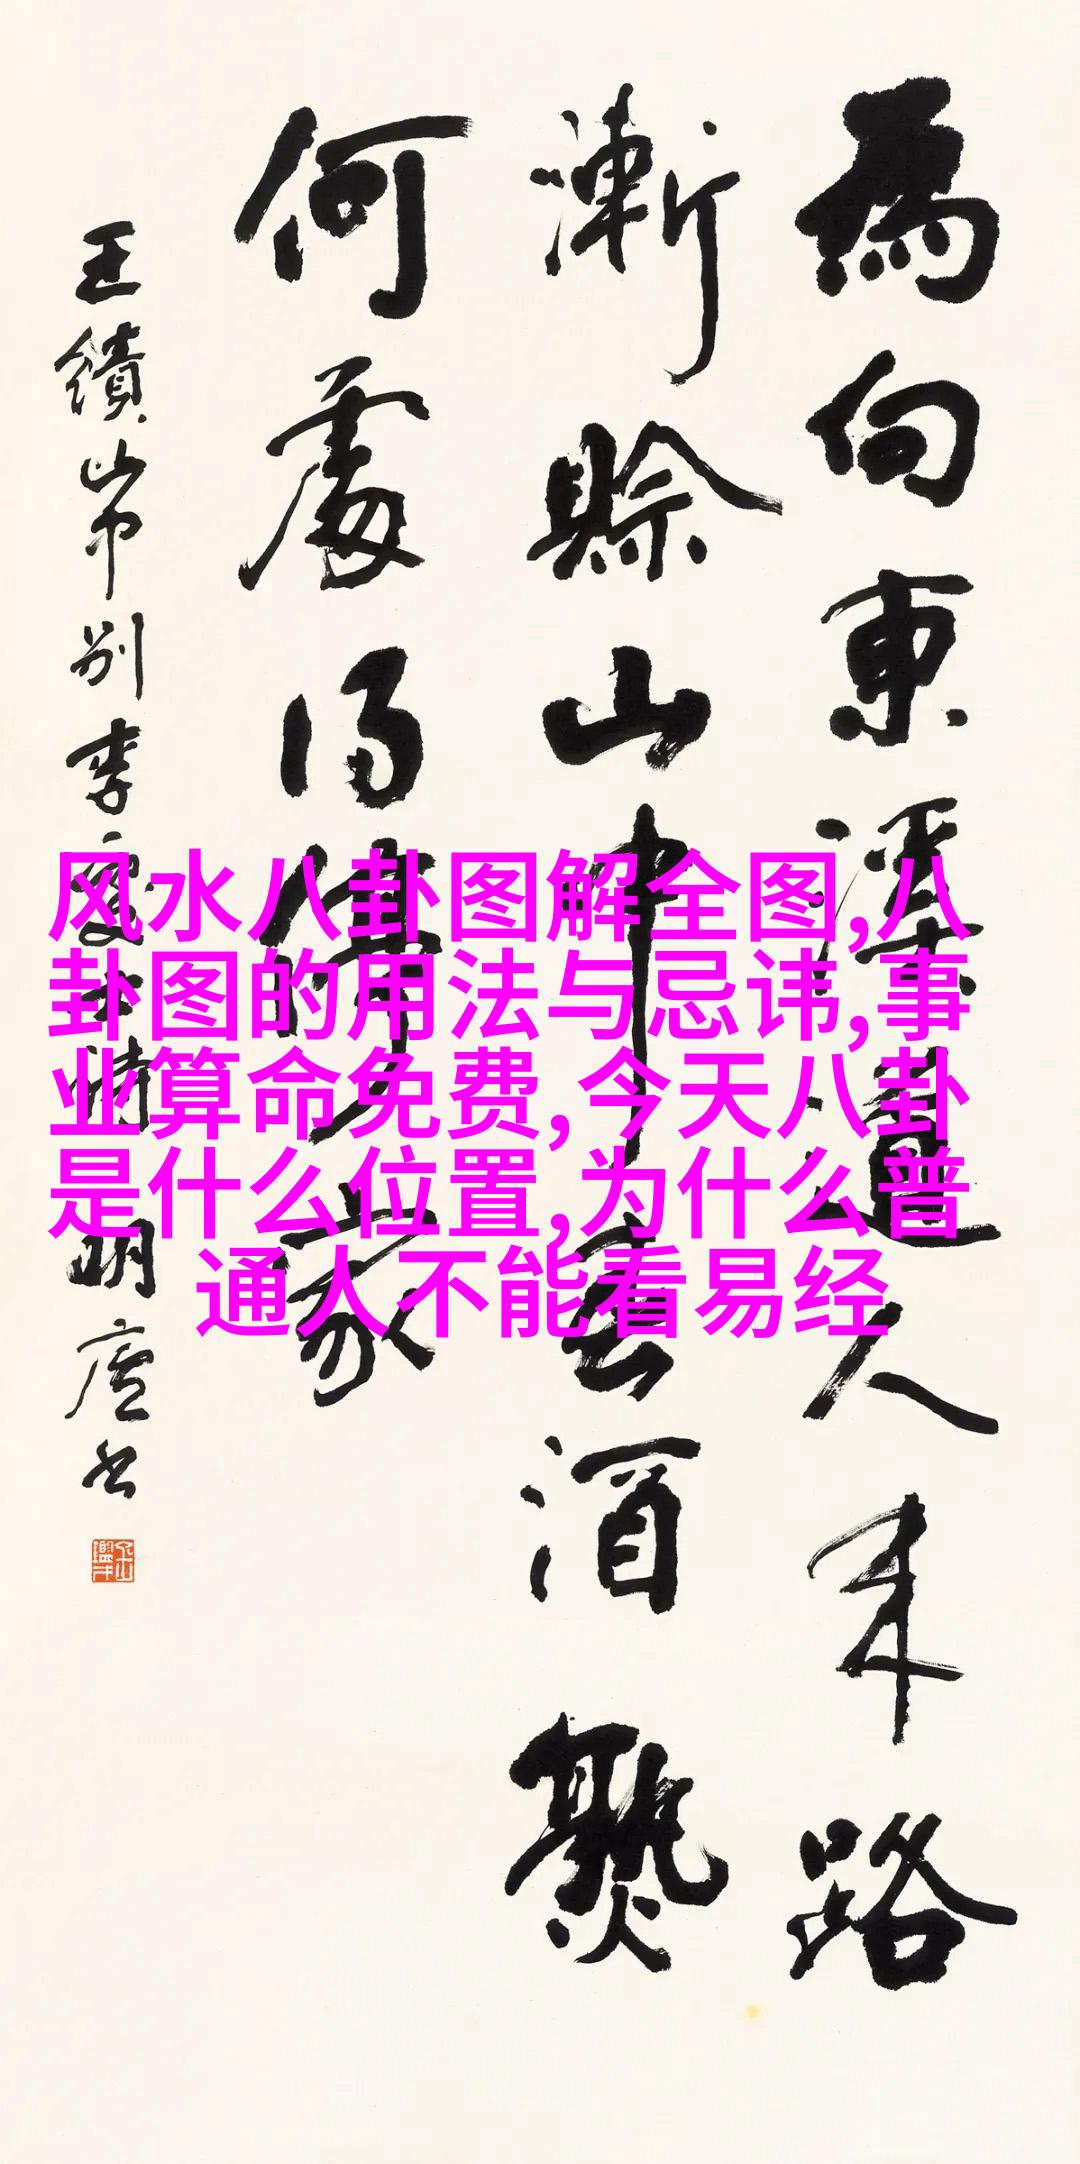 為向東溪道人來路
漸賒山中春酒熟
何處得停家
王績山中別李處士詩明廬書
风水八卦图解全图,八
卦图的用法与忌讳,事
业算命免费,今天八卦
是什么位置,为什么普
通人不能看易经